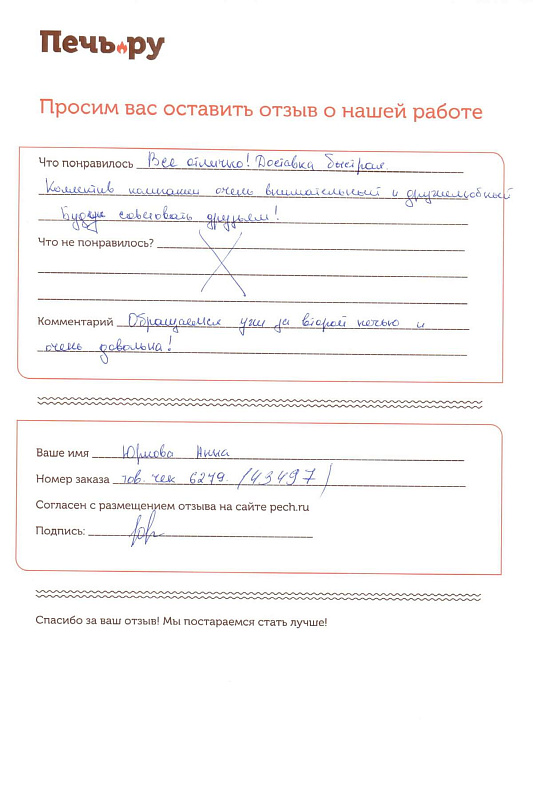 Печь.ру
Просим вас оставить отзыв о нашей работе
Что понравилось Все отлично! Доставка быстрая.
Коллектив компании очень внимательный и дружелюбный
Будем советовать друзьям!
Что не понравилось?
Комментарий Обращаемся уже за второй печью и
очень довольна!
Ваше имя Анна
Номер заказа тов. чек 6279. (43497)
Согласен с размещением отзыва на сайте pech.ru
Подпись:
Спасибо за ваш отзыв! Мы постараемся стать лучше!